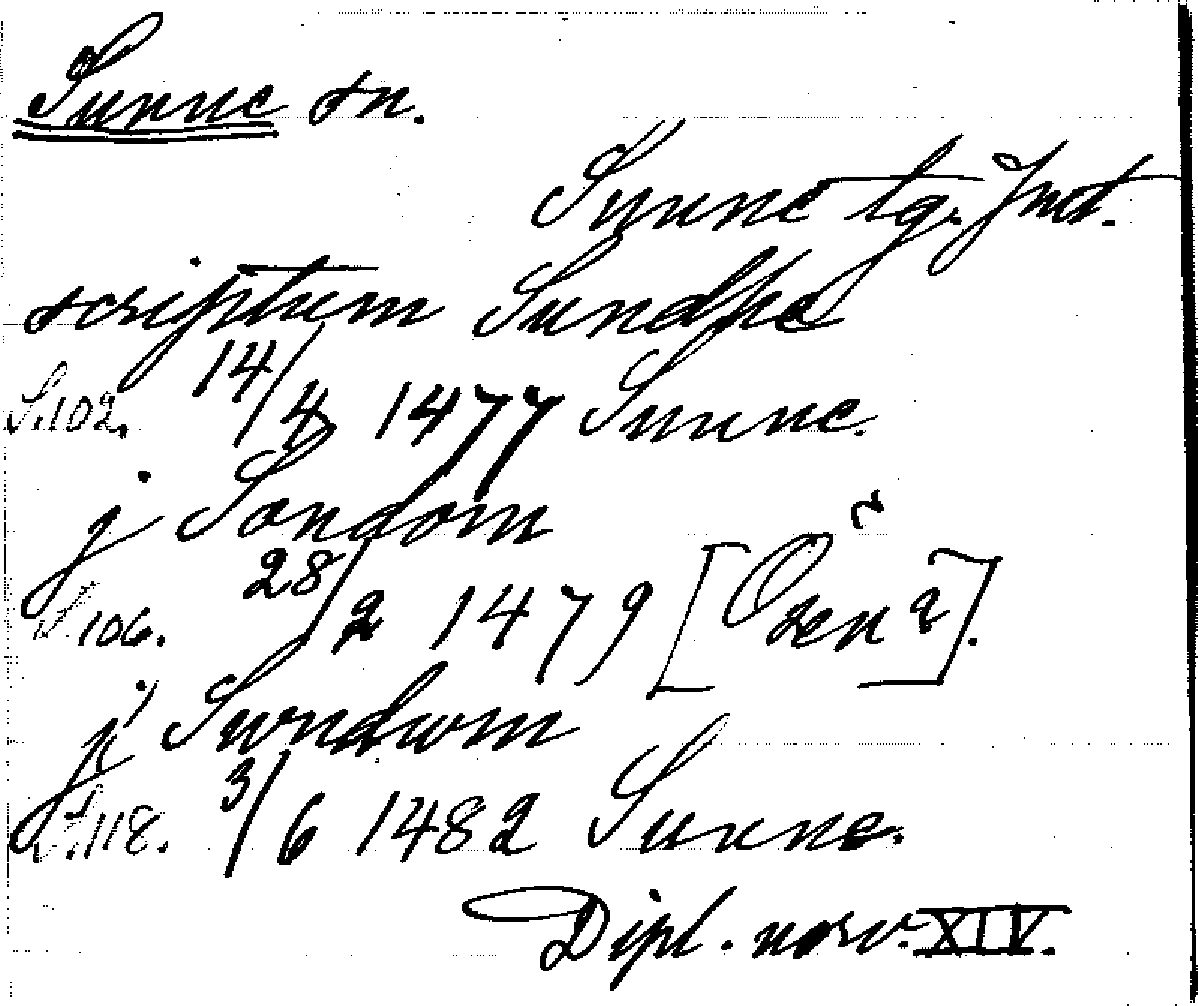 Sunne sn.
Sunne tg. Jmt.
scriptum Sundhe
S.102. 14/4 1477 Sunne.
j Sondom
S.106. 28/2 1479 [Ösen?].
j Swndwm
S.118. 3/6 1482 Sunne.
Dipl. norv. XIV.